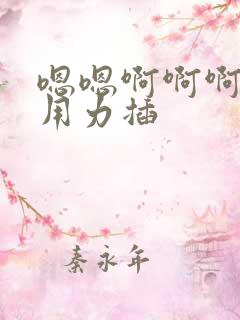 嗯嗯啊啊啊
用力插
秦永年